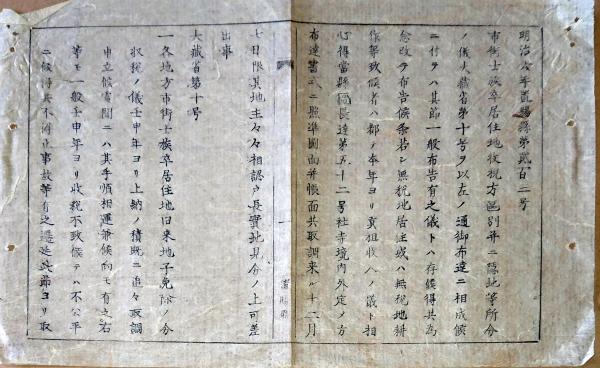 明治六年置賜縣第貳百二号
市街士族卒居住地收税方區別并ニ隱地等所分
ノ儀大藏省第十号ヲ以左ノ通御布達ニ相成候
ニ付テハ其節一般布告有之儀トハ存候得共為
念改テ布告候条若シ無税地居主或ハ無税地耕
作等致候者ハ都テ本年ヨリ貢租收入ノ儀ト相
心得當縣 長達第五十二号社寺境内外定ノ方
布達書式ニ照準圖面并帳面共取調来ル十二月
七日限其地主々々相認戸長實地見分ノ上可差
出事
大藏省第十号
一各地方市街士族卒居住地旧来地子免除ノ分
收税ノ儀壬申年ヨリ上納ノ積既ニ追々取調
申立候齎聞ニハ其手順相運兼候向モ有之右
等モ一般壬申年ヨリ收税不致候テハ不公平
ニ候得共不得止事故等有之遷延此節ヨリ取